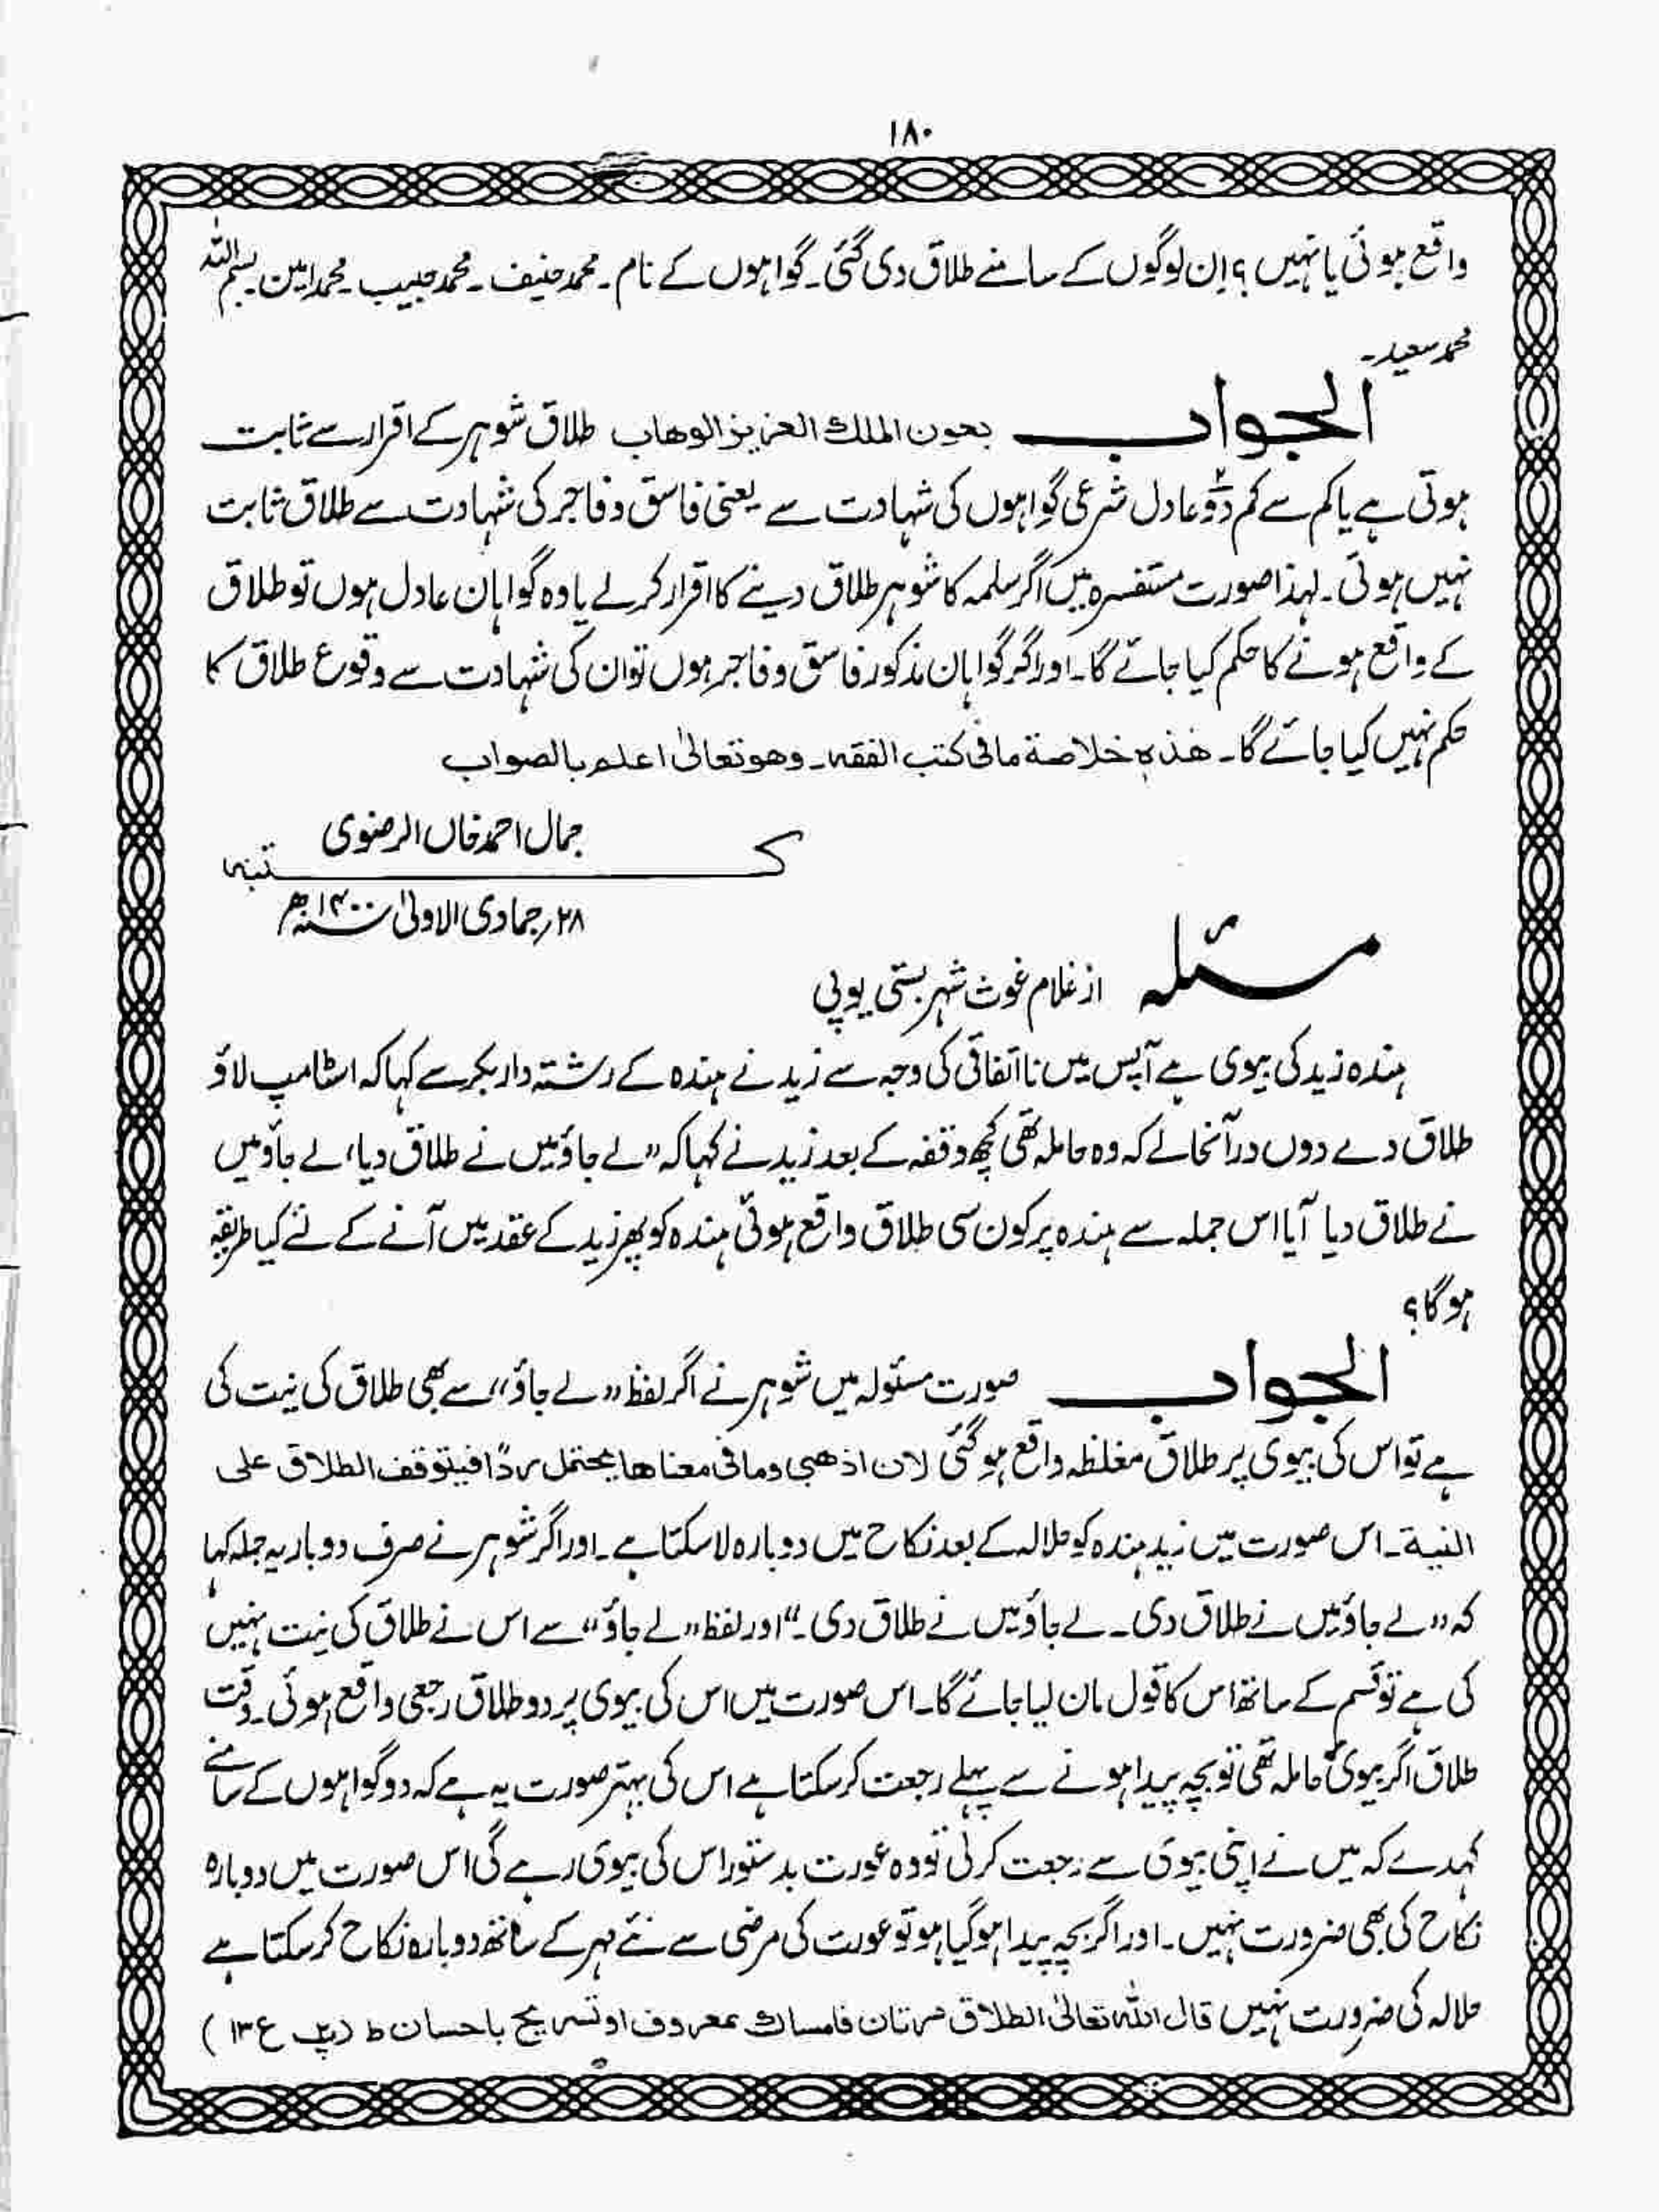 ۱۸۰
واقع ہوئی یا نہیں؟ ان لوگوں کے سامنے طلاق دی گئی۔ گواہوں کے نام۔ محمد حنیف۔ محمد حبیب۔ محمد امین۔ بسم اللہ
محمد سعید۔
الجواب بعون الملك العزیز الوهاب طلاق شوہر کے اقرار سے ثابت
ہوتی ہے یا کم سے کم دو۲ عادل شرعی گواہوں کی شہادت سے یعنی فاسق و فاجر کی شہادت سے طلاق ثابت
نہیں ہوتی۔ لہذا صورت مستفسرہ میں اگر سلمہ کا شوہر طلاق دینے کا اقرار کر لے یا وہ گواہان عادل ہوں تو طلاق
کے واقع ہونے کا حکم کیا جائے گا۔ اور اگر گواہان مذکور فاسق و فاجر ہوں تو ان کی شہادت سے وقوع طلاق کا
حکم نہیں کیا جائے گا۔ هٰذہٖ خلاصة مافی کتب الفقہ۔ وھو تعالیٰ اعلم بالصواب
جمال احمد خاں الرضوی
کتبہ
۲۸؍ جمادی الاولیٰ سنہ ۱۴۰۰ھ
مسئلہ از غلام غوث شہر بستی یوپی
ہندہ زید کی بیوی ہے آپس میں نااتفاقی کی وجہ سے زید نے ہندہ کے رشتہ دار بکر سے کہا کہ اسٹامپ لاؤ
طلاق دے دوں درآنحالے کہ وہ حاملہ تھی کچھ وقفہ کے بعد زید نے کہا کہ ”لے جاؤ میں نے طلاق دیا، لے جاؤ میں
نے طلاق دیا آیا اس جملہ سے ہندہ پر کون سی طلاق واقع ہوئی ہندہ کو پھر زید کے عقد میں آنے کے لئے کیا طریقہ
ہوگا؟
الجواب صورت مسئولہ میں شوہر نے اگر لفظ ”لے جاؤ“ سے بھی طلاق کی نیت کی
ہے تو اس کی بیوی پر طلاق مغلظہ واقع ہو گئی لان اذهبی ومافی معناها یحتمل ردًا فیتوقف الطلاق علی
النیة۔ اس صورت میں زید ہندہ کو حلالہ کے بعد نکاح میں دوبارہ لا سکتا ہے۔ اور اگر شوہر نے صرف دو بار یہ جملہ کہا
کہ ”لے جاؤ میں نے طلاق دی۔ لے جاؤ میں نے طلاق دی۔“ اور لفظ ”لے جاؤ“ سے اس نے طلاق کی نیت نہیں
کی ہے تو قسم کے ساتھ اس کا قول مان لیا جائے گا۔ اس صورت میں اس کی بیوی پر دو طلاق رجعی واقع ہوئی۔ وقت
طلاق اگر بیوی حاملہ تھی تو بچہ پیدا ہونے سے پہلے رجعت کر سکتا ہے اس کی بہتر صورت یہ ہے کہ دو گواہوں کے سامنے
کہدے کہ میں نے اپنی بیوی سے رجعت کر لی تو وہ عورت بدستور اس کی بیوی رہے گی اس صورت میں دوبارہ
نکاح کی بھی ضرورت نہیں۔ اور اگر بچہ پیدا ہو گیا ہو تو عورت کی مرضی سے نئے مہر کے ساتھ دوبارہ نکاح کر سکتا ہے
حلالہ کی ضرورت نہیں قال اللہ تعالیٰ الطلاق مرتان فامساك بمعروف او تسریح باحسان ط (پ۲ ع ۱۳)